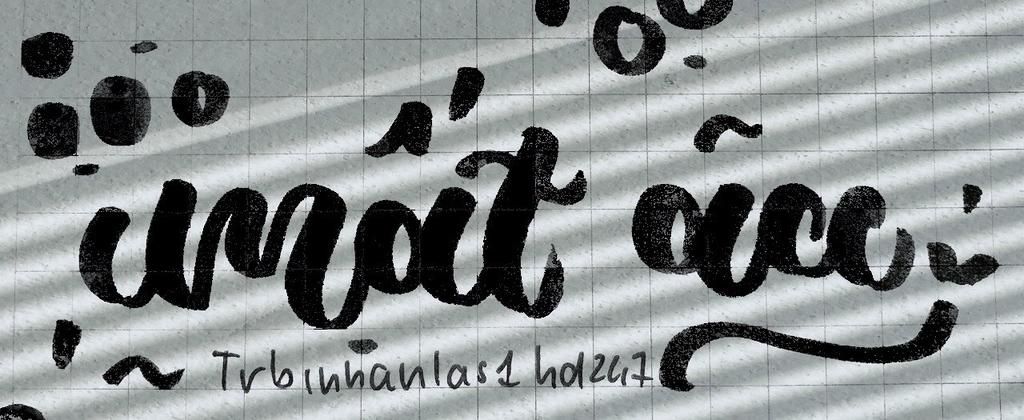 mất ãcc
Trbinhanlas1 hd247